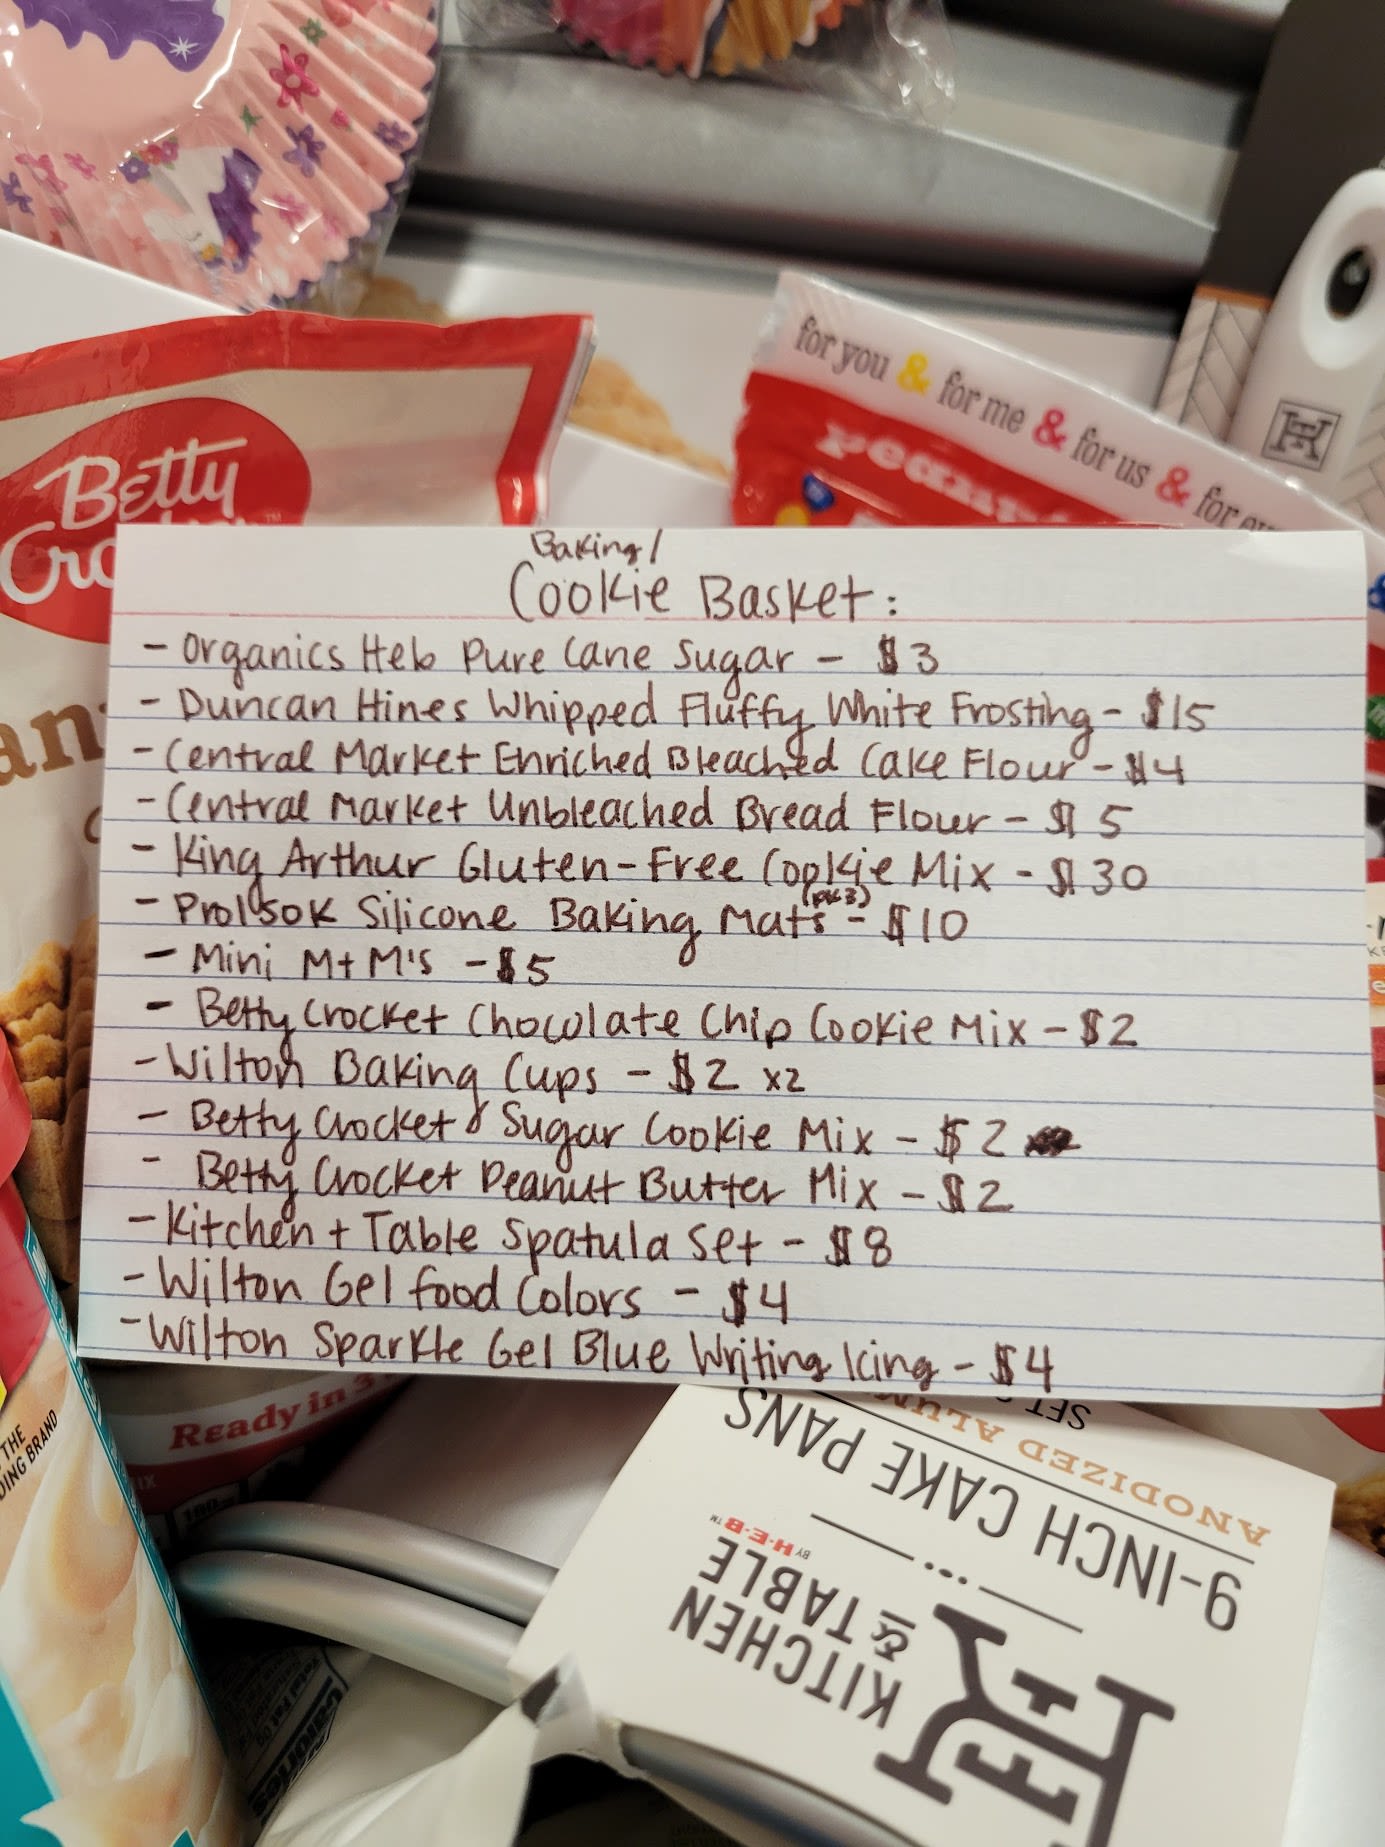 for you & for me & for us & for
peanut
Betty
Cro
an
Baking/
Cookie Basket:
- Organics Heb Pure Cane Sugar - $3
- Duncan Hines Whipped Fluffy White Frosting - $15
- Central Market Enriched Bleached Cake Flour - $4
- Central Market Unbleached Bread Flour - $5
- King Arthur Gluten-Free Cookie Mix - $30
(pk3)
- Prolsok Silicone Baking Mats - $10
- Mini M+M's - $5
- Betty Crocket Chocolate Chip Cookie Mix - $2
- Wilton Baking Cups - $2 x2
- Betty Crocket Sugar Cookie Mix - $2
- Betty Crocket Peanut Butter Mix - $2
- Kitchen + Table Spatula Set - $8
- Wilton Gel food Colors - $4
- Wilton Sparkle Gel Blue Writing Icing - $4
Ready in 3
THE
DING BRAND
SET
ANODIZED ALUM
9-INCH CAKE PANS
KITCHEN
& TABLE
BY H-E-B™
Calories
Total Fat 0g